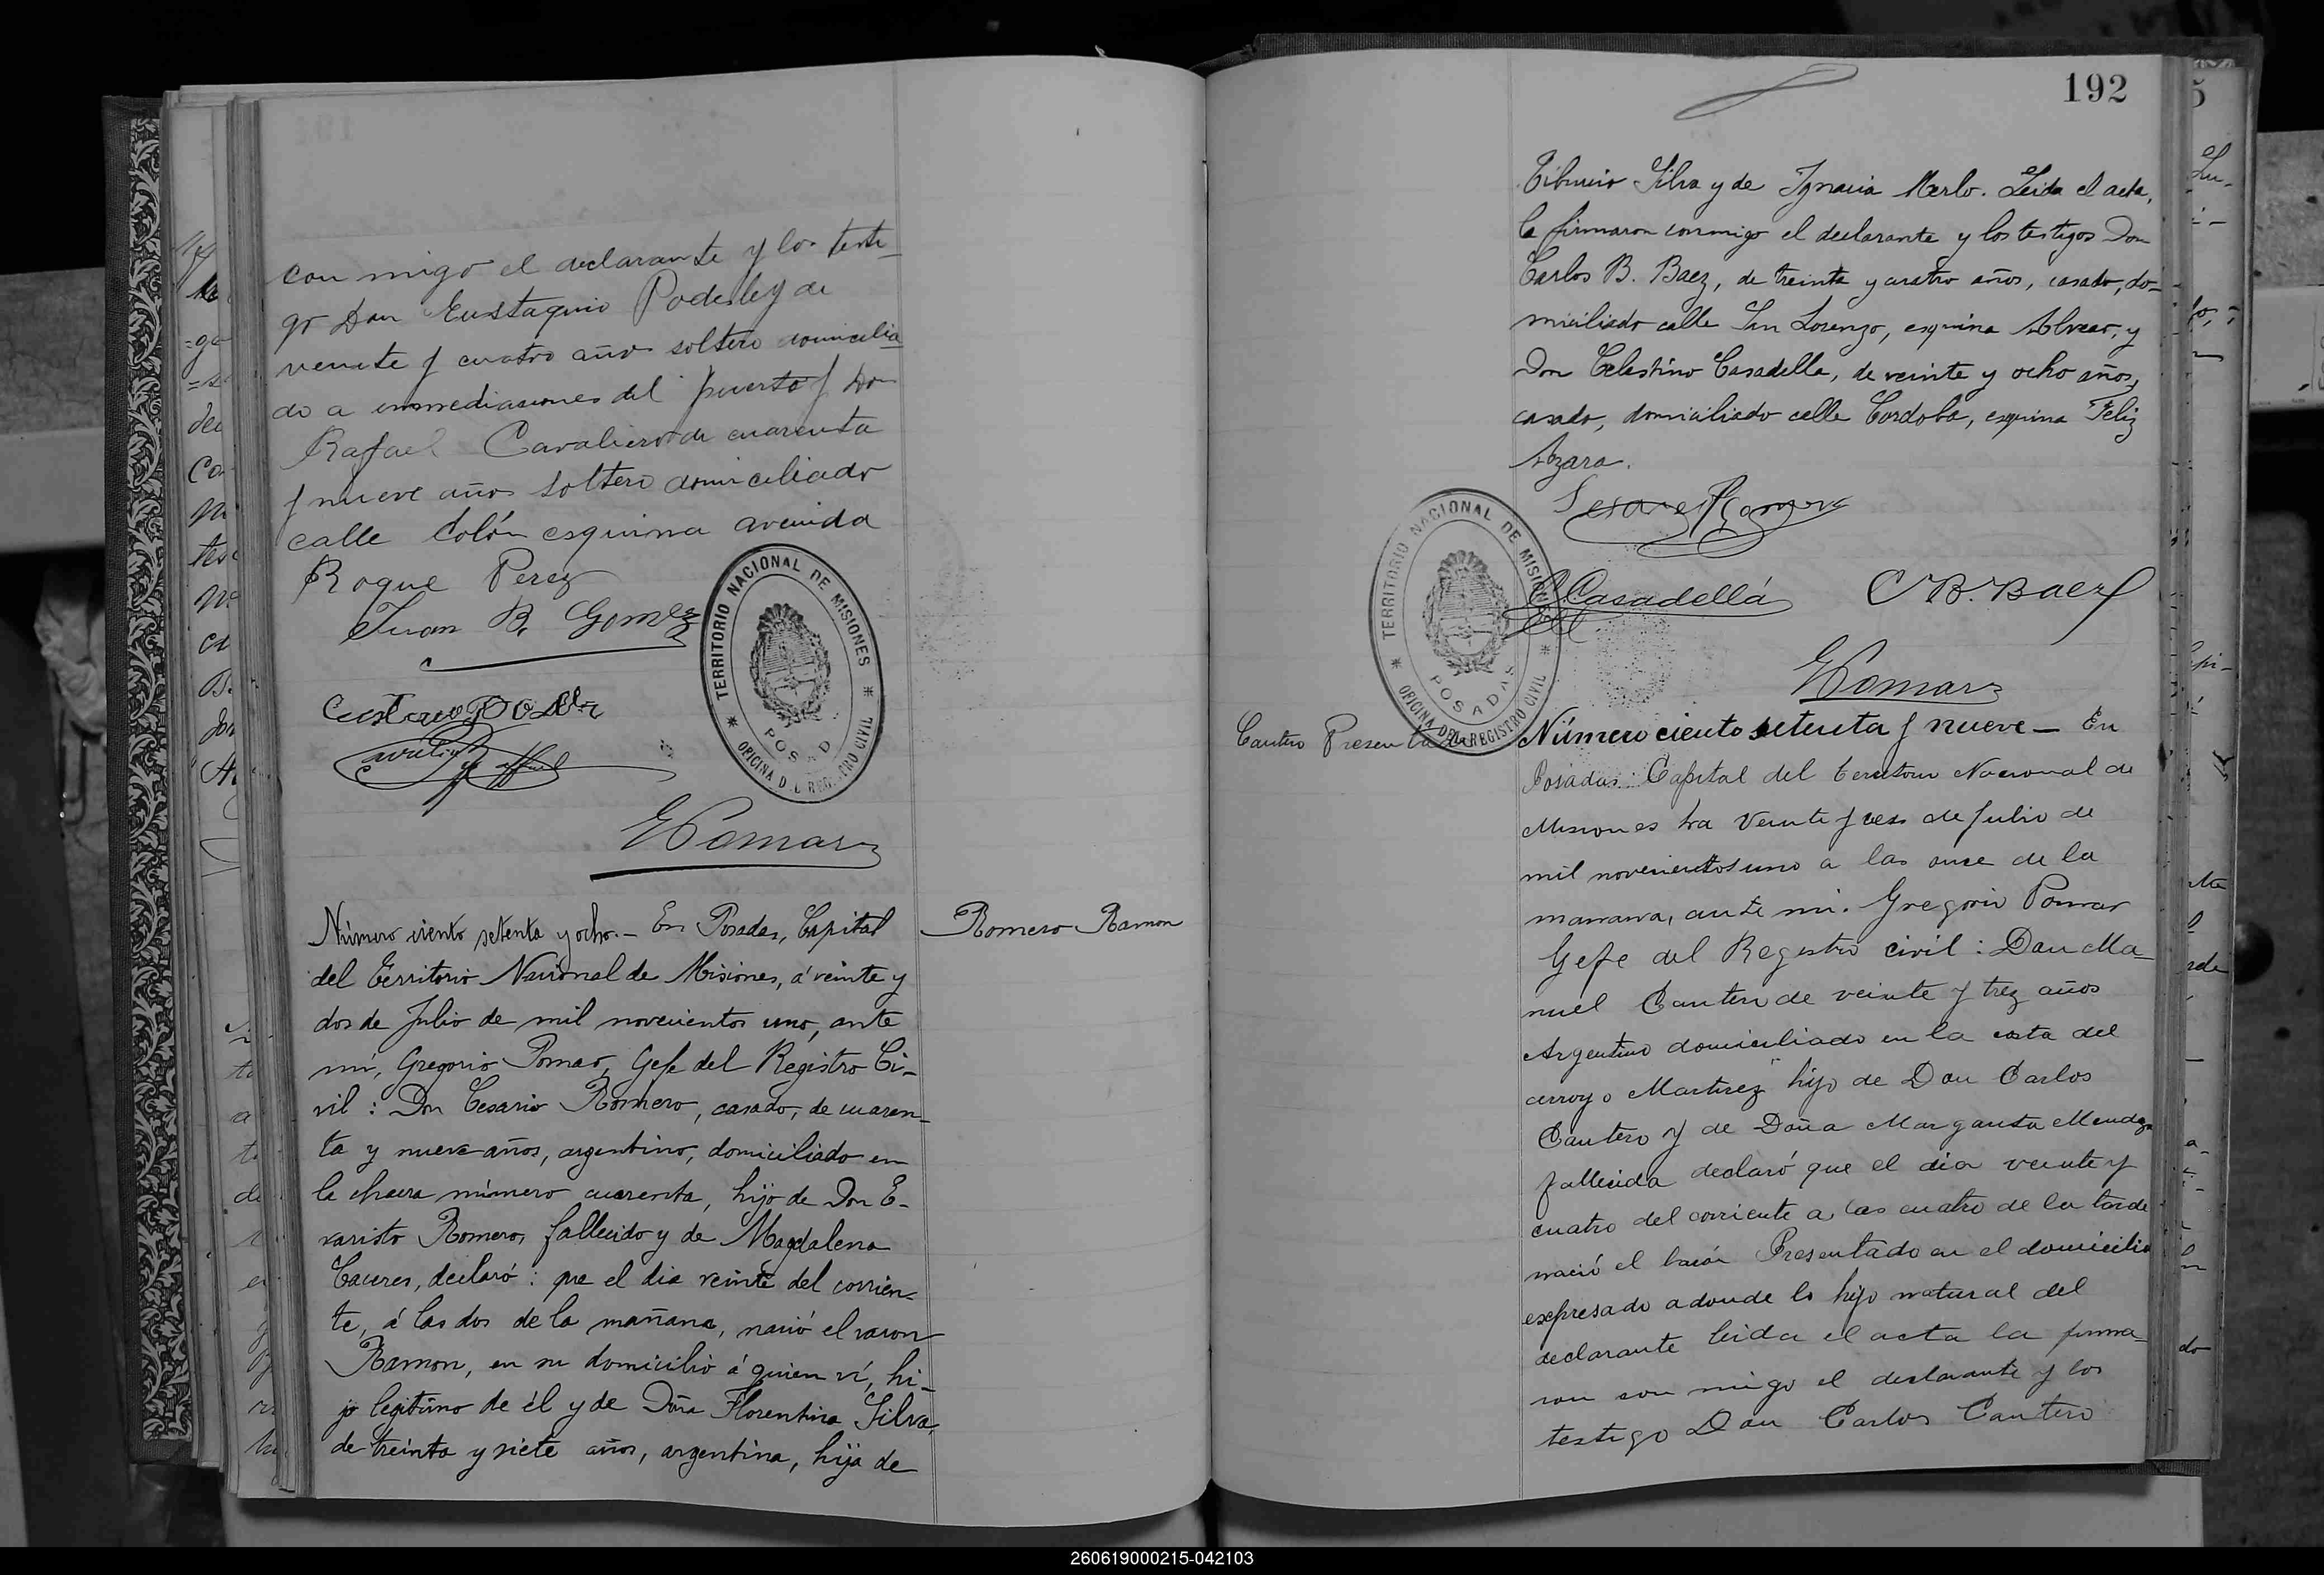 con migo el declarante y los testi
go Don Eustaquio Podesley de
veinte y cuatro años soltero domicilia
do a inmediaciones del puerto y Don
Rafael Cavaliero de cuarenta
y nueve años soltero domiciliado
calle Colón esquina avenida
Roque Perez
Juan B. Gomez
TERRITORIO NACIONAL DE MISIONES
POSADAS
OFICINA DEL REGISTRO CIVIL
GPomar
Número ciento setenta y ocho.- En Posadas, Capital
del Territorio Nacional de Misiones, á veinte y
dos de Julio de mil novecientos uno, ante
mí, Gregorio Pomar, Gefe del Registro Ci-
vil: Don Cesario Romero, casado, de cuaren-
ta y nueve años, argentino, domiciliado en
la chacra número cuarenta, hijo de Don E-
varisto Romero, fallecido y de Magdalena
Caceres, declaró: que el dia veinte del corrien-
te, á las dos de la mañana, nació el varon
Ramon, en su domicilio á quien ví, hi-
jo legítimo de él y de Doña Florentina Silva,
de treinta y siete años, argentina, hija de
Romero Ramon
192
Tiburcio Silva y de Ignacia Merlo. Leida el acta,
la firmaron conmigo el declarante y los testigos Don
Carlos B. Baez, de treinta y cuatro años, casado, do-
miciliado calle San Lorenzo, esquina Alvear, y
Don Celestino Casadella, de veinte y ocho años,
casado, domiciliado calle Cordoba, esquina Feliz
Azara.
Cesareo Romero
TERRITORIO NACIONAL DE MISIONES
POSADAS
OFICINA DEL REGISTRO CIVIL
C Casadellá
C B. Baez
GPomar
Cantero Presentado
Número ciento setenta y nueve - En
Posadas: Capital del territorio Nacional de
Misiones a veinte y seis de Julio de
mil novecientos uno a las once de la
manana, ante mi. Gregorio Pomar
Gefe del Registro civil: Don Ma-
nuel Cantero de veinte y trez años
Argentino domiciliado en la costa del
arroyo Martirez hijo de Don Carlos
Cantero y de Doña Margarita Mendoza
fallecida declaró que el dia veinte y
cuatro del corriente a las cuatro de la tarde
nació el barón Presentado en el domicilio
expresado adonde lo hijo natural del
declarante leida el acta la firma-
ron con migo el declarante y los
testigo Don Carlos Cantero
260619000215-042103